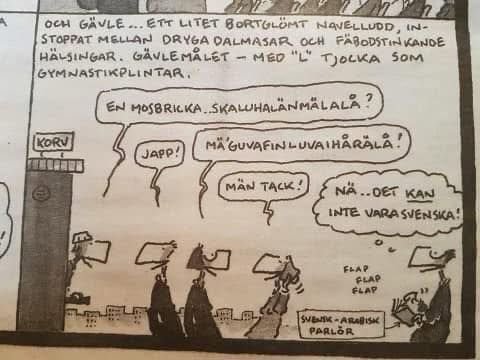 OCH GÄVLE... ETT LITET BORTGLÖMT NAVELLUDD, IN-
STOPPAT MELLAN DRYGA DALMASAR OCH FÄBODSTINKANDE
HÄLSINGAR. GÄVLEMÅLET – MED "L" TJOCKA SOM
GYMNASTIKPLINTAR.
EN MOSBRICKA..SKALUHALÄNMÄLALÅ?
KORV
JAPP!
MÄ'GUVAFINLUVAIHÅRÄLÅ!
MÄN TACK!
NÄ..DET KAN
INTE VARA SVENSKA!
FLAP
FLAP
FLAP
SVENSK-ARABISK
PARLÖR